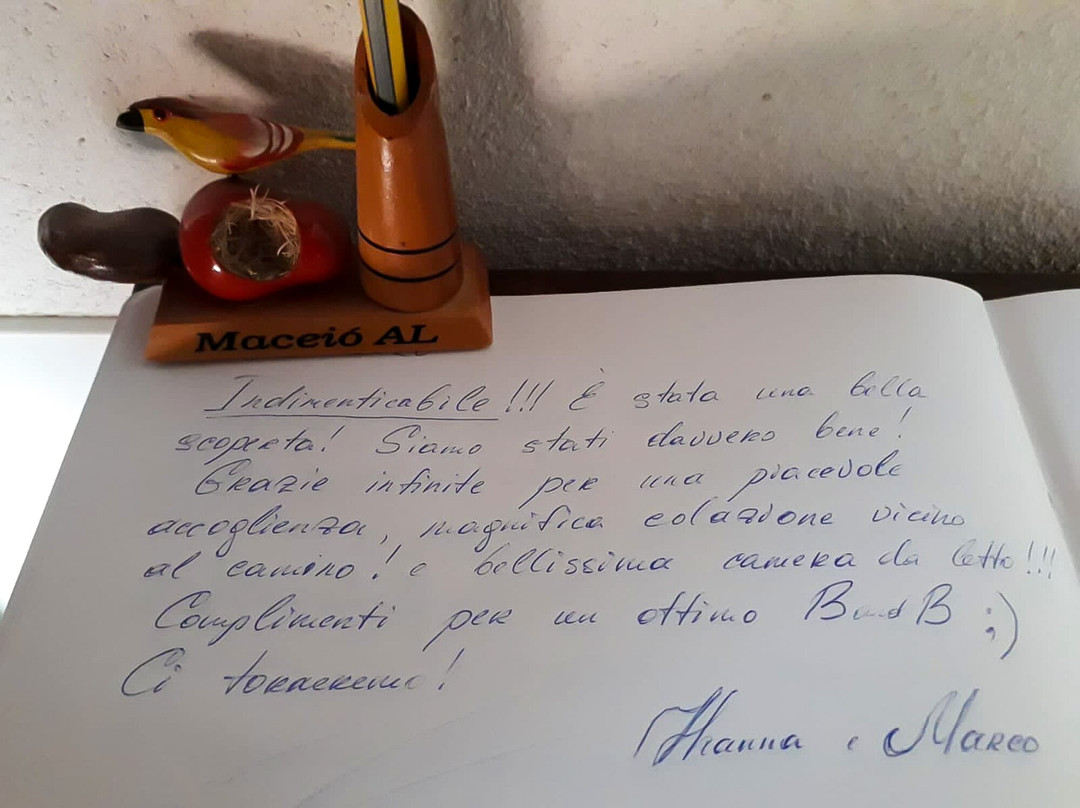 Maceió AL
Indimenticabile!!! È stata una bella
scoperta! Siamo stati davvero bene!
Grazie infinite per una piacevole
accoglienza, magnifica colazione vicino
al camino! e bellissima camera da letto!!!
Complimenti per un ottimo BandB ;)
Ci torneremo!
e Marco